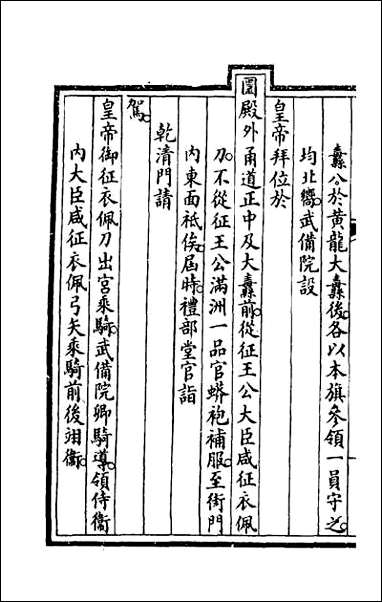 纛公於黄龍大纛後各以本旗參領一員守之
均北嚮武備院設
皇帝拜位於
圜殿外甬道正中及大纛前從征王公大臣咸征衣佩
刀不從征王公滿洲一品官蟒袍補服至街門
内東面祗俟屆時禮部堂官詣
乾清門請
駕
皇帝御征衣佩刀出宮乘騎武備院卿騎導領侍衞
内大臣咸征衣佩弓矢乘騎前後翊衞